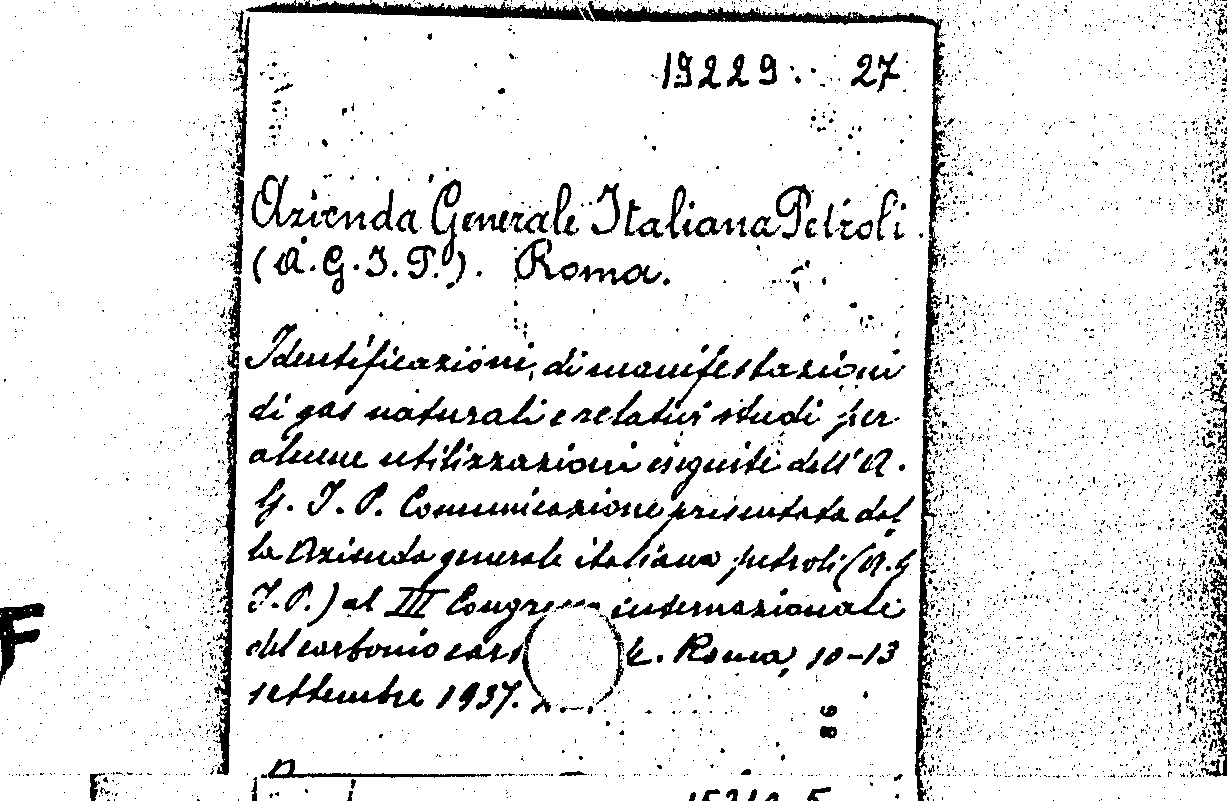 19229. 27
Azienda Generale Italiana Petroli.
(A.G.I.P.). Roma.
Identificazioni, di manifestazioni
di gas naturali e relativi studi per
alcune utilizzazioni eseguite dall'A.
G. I. P. Comunicazione presentata dal
la Azienda generale italiana petroli (A.G
I.P.) al III Congresso internazionale
del carbonio Roma, 10-13
settembre 1937.
86
F